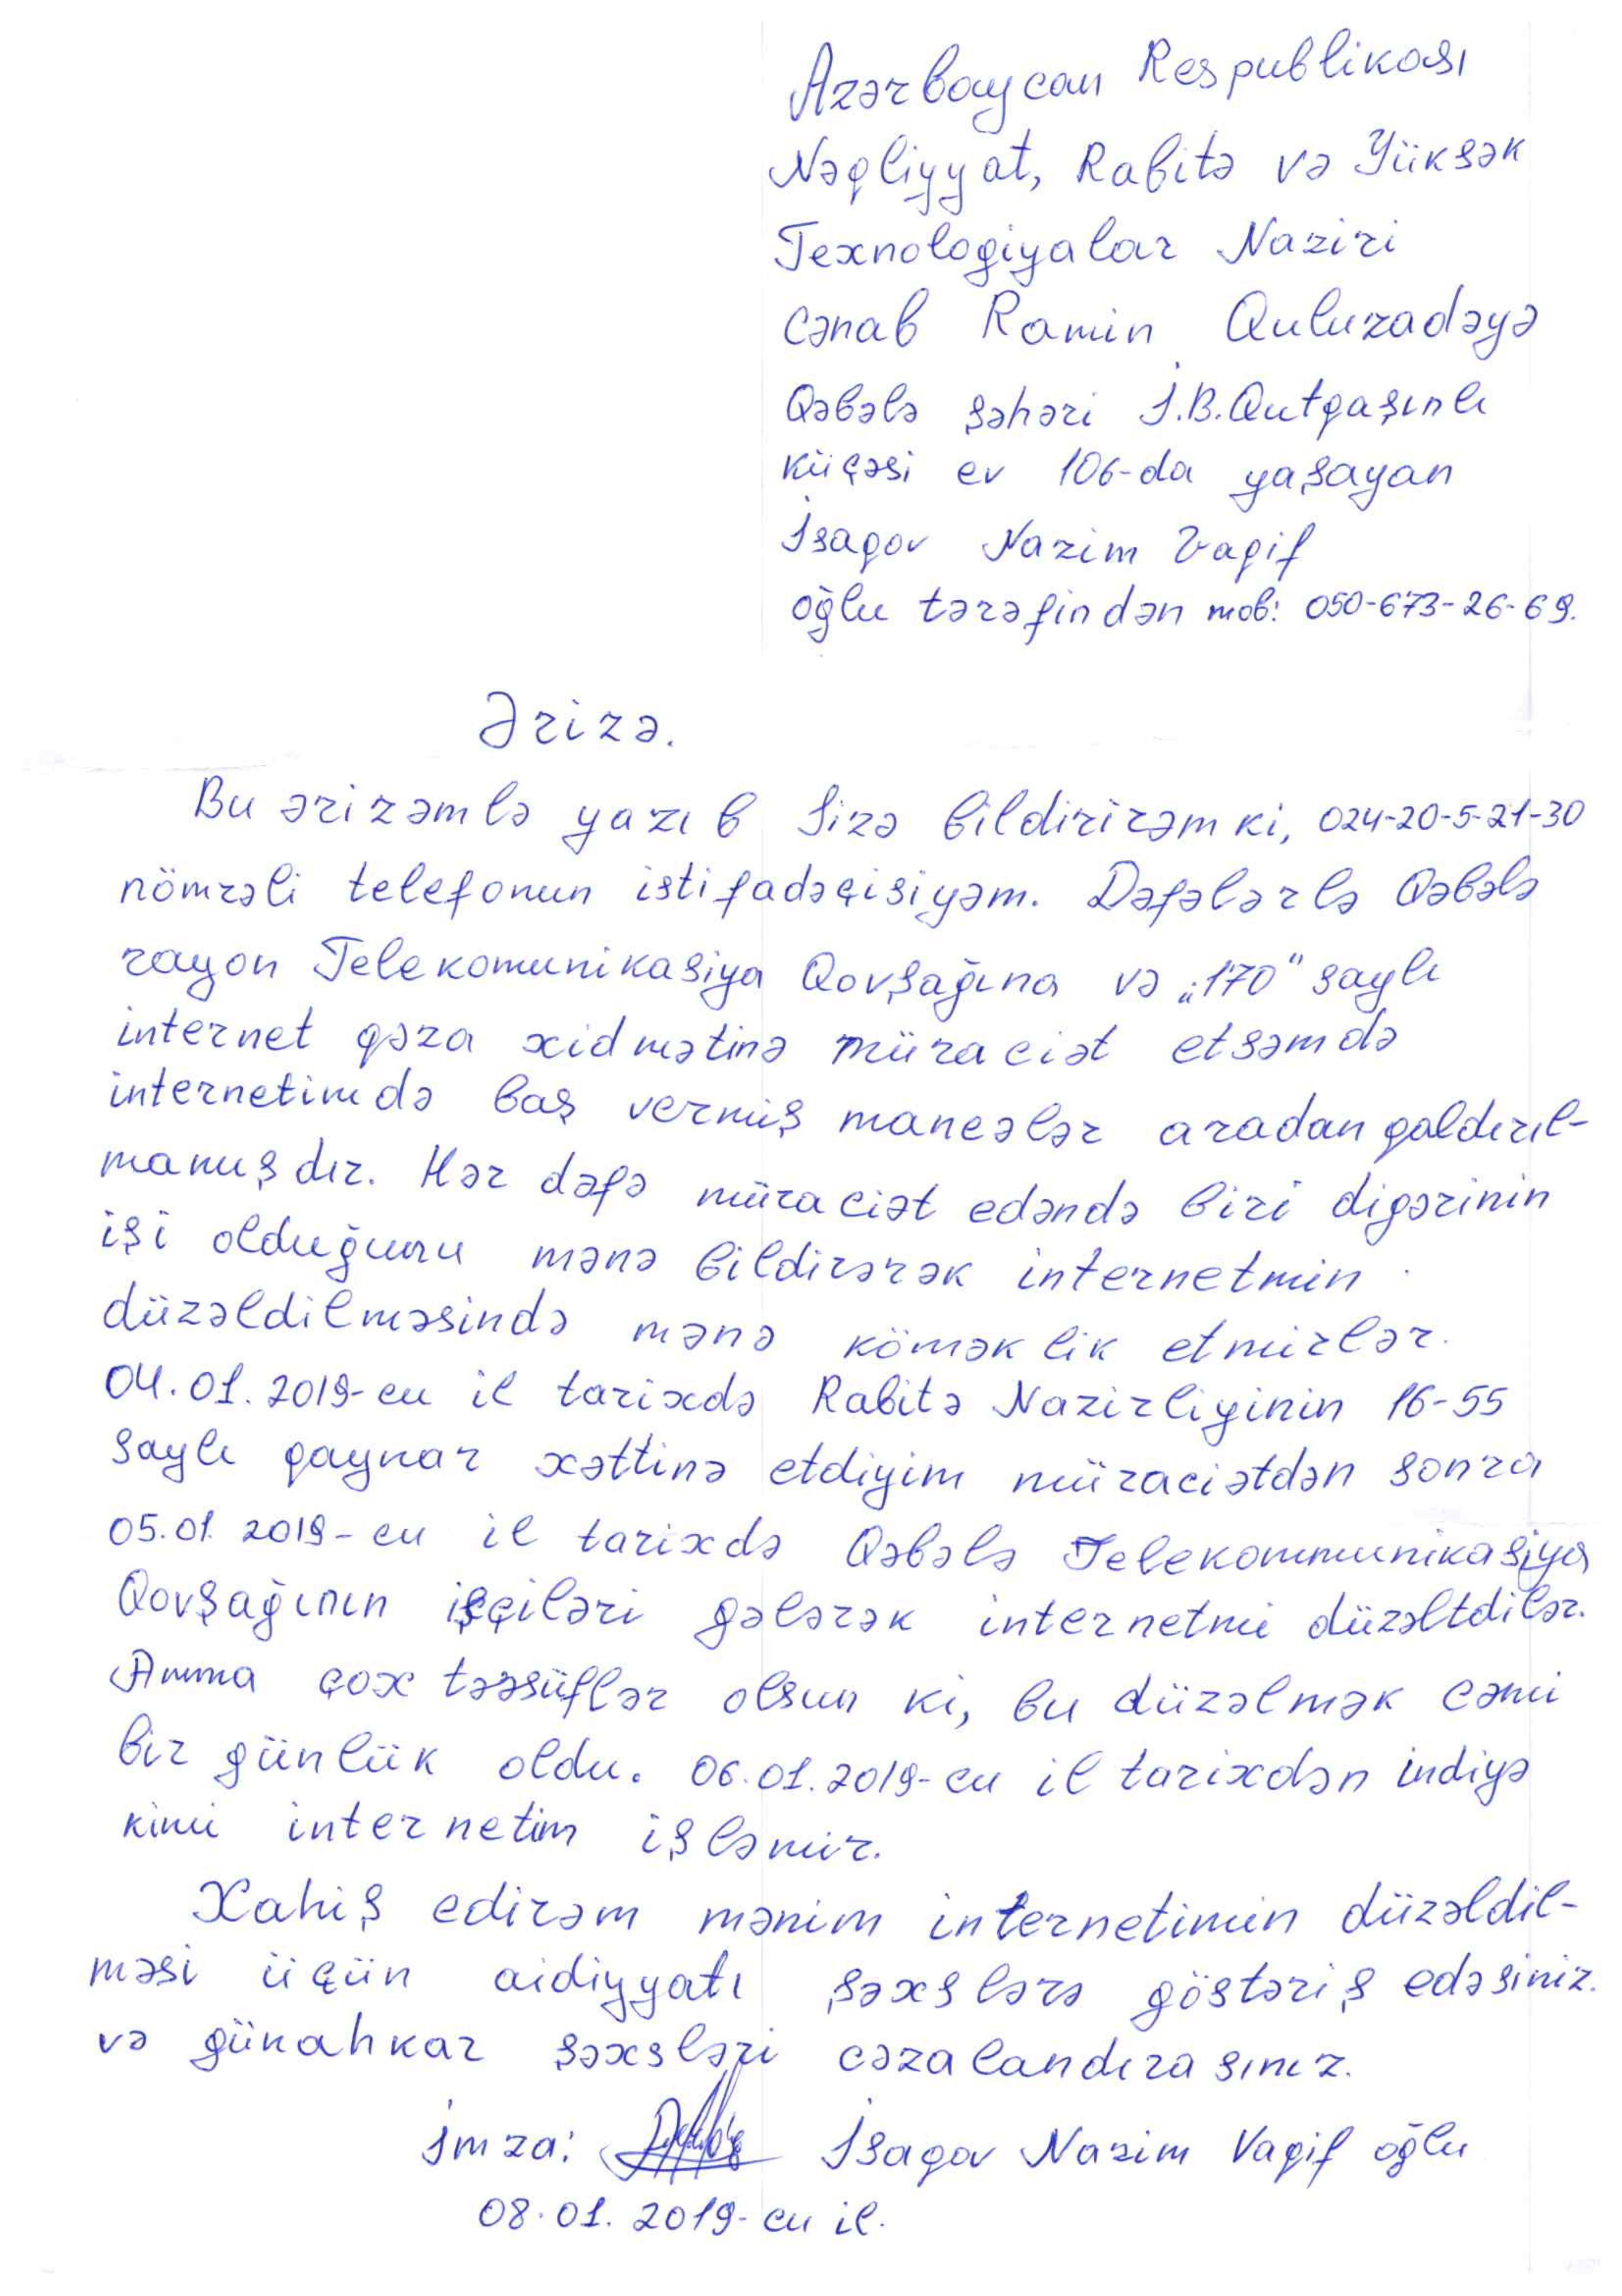 Azərbaycan Respublikası
Nəqliyyat, Rabitə və Yüksək
Texnologiyalar Naziri
cənab Ramin Quluzadəyə
Qəbələ şəhəri İ.B.Qutqaşınlı
küçəsi ev 106-da yaşayan
İsaqov Nazim Vaqif
oğlu tərəfindən mob: 050-673-26-69.
Ərizə.
Bu ərizəmlə yazıb Sizə bildirirəm ki, 024-20-5-21-30
nömrəli telefonun istifadəçisiyəm. Dəfələrlə Qəbələ
rayon Telekomunikasiya Qovşağına və „170" saylı
internet qəza xidmətinə müraciət etsəmdə
internetimdə baş vermiş maneələr aradan qaldırıl-
mamışdır. Hər dəfə müraciət edəndə biri digərinin
işi olduğunu mənə bildirərək internetmin
düzəldilməsində mənə köməklik etmirlər.
04.01.2019-cu il tarixdə Rabitə Nazirliyinin 16-55
saylı qaynar xəttinə etdiyim müraciətdən sonra
05.01.2019-cu il tarixdə Qəbələ Telekommunikasiya
Qovşağının işçiləri gələrək internetmi düzəltdilər.
Amma çox təəsüflər olsun ki, bu düzəlmək cəmi
bir günlük oldu. 06.01.2019-cu il tarixdən indiyə
kimi internetim işləmir.
Xahiş edirəm mənim internetimin düzəldil-
məsi üçün aidiyyatı şəxslərə göstəriş edəsiniz.
və günahkar şəxsləri cəzalandırasınız.
İmza: İsaqov Nazim Vaqif oğlu
08.01.2019-cu il.